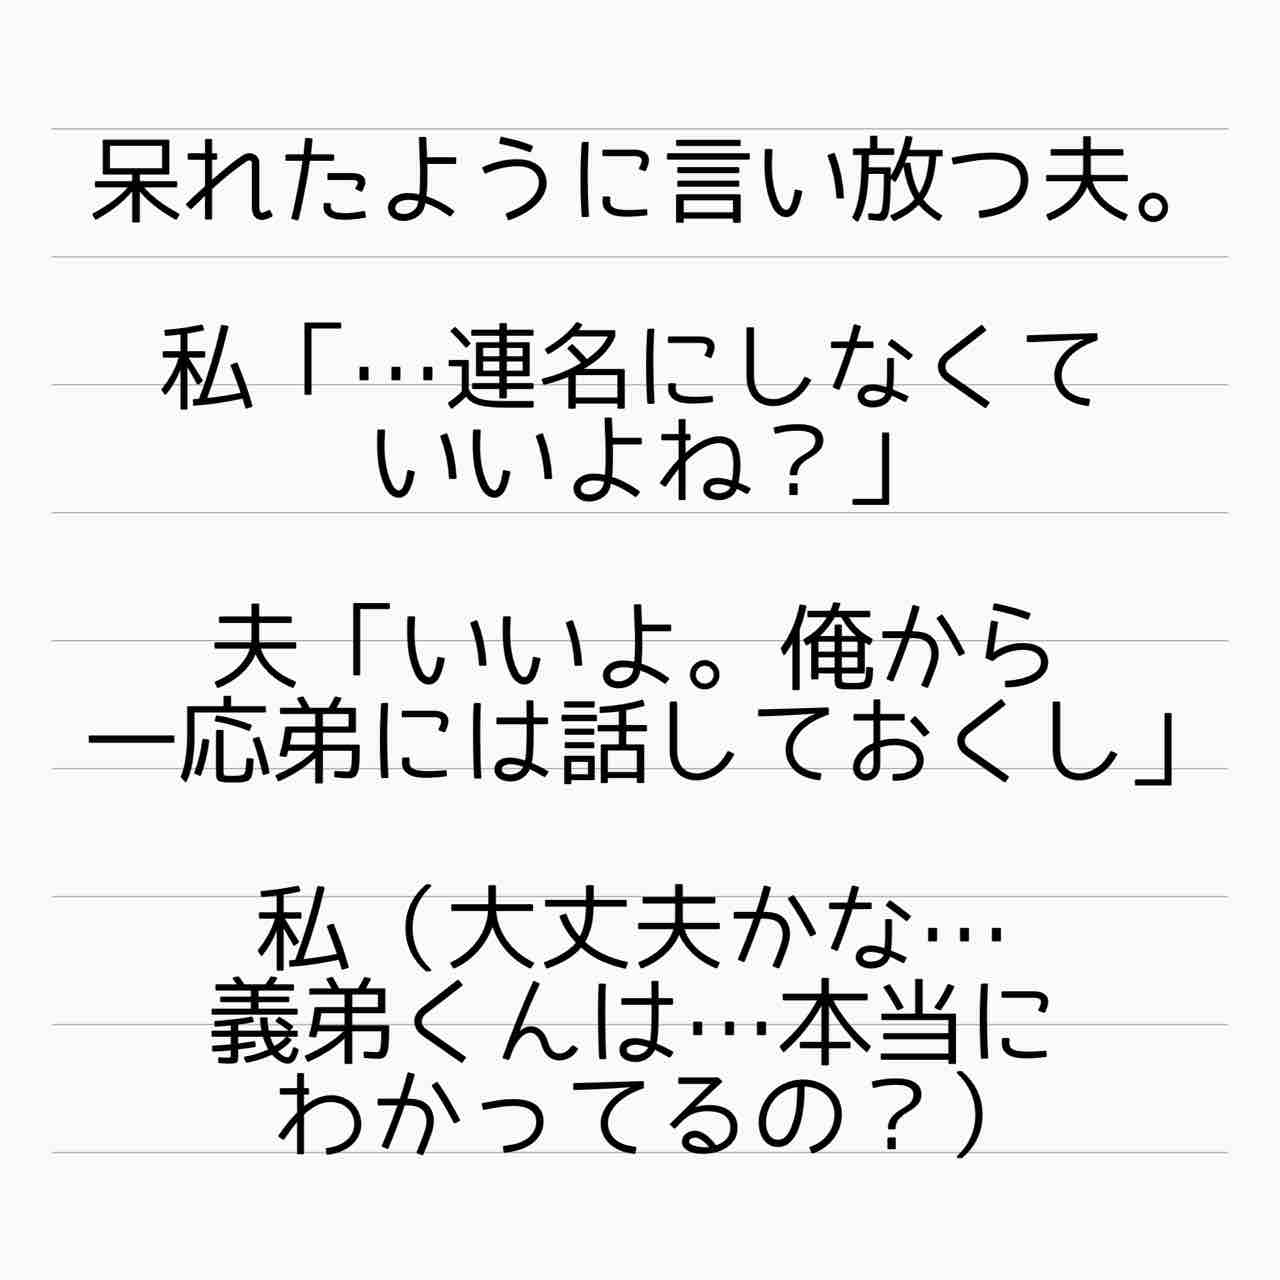 呆れたように言い放つ夫。
私「…連名にしなくて
いいよね？」
夫「いいよ。俺から
一応弟には話しておくし」
私（大丈夫かな…
義弟くんは…本当に
わかってるの？）